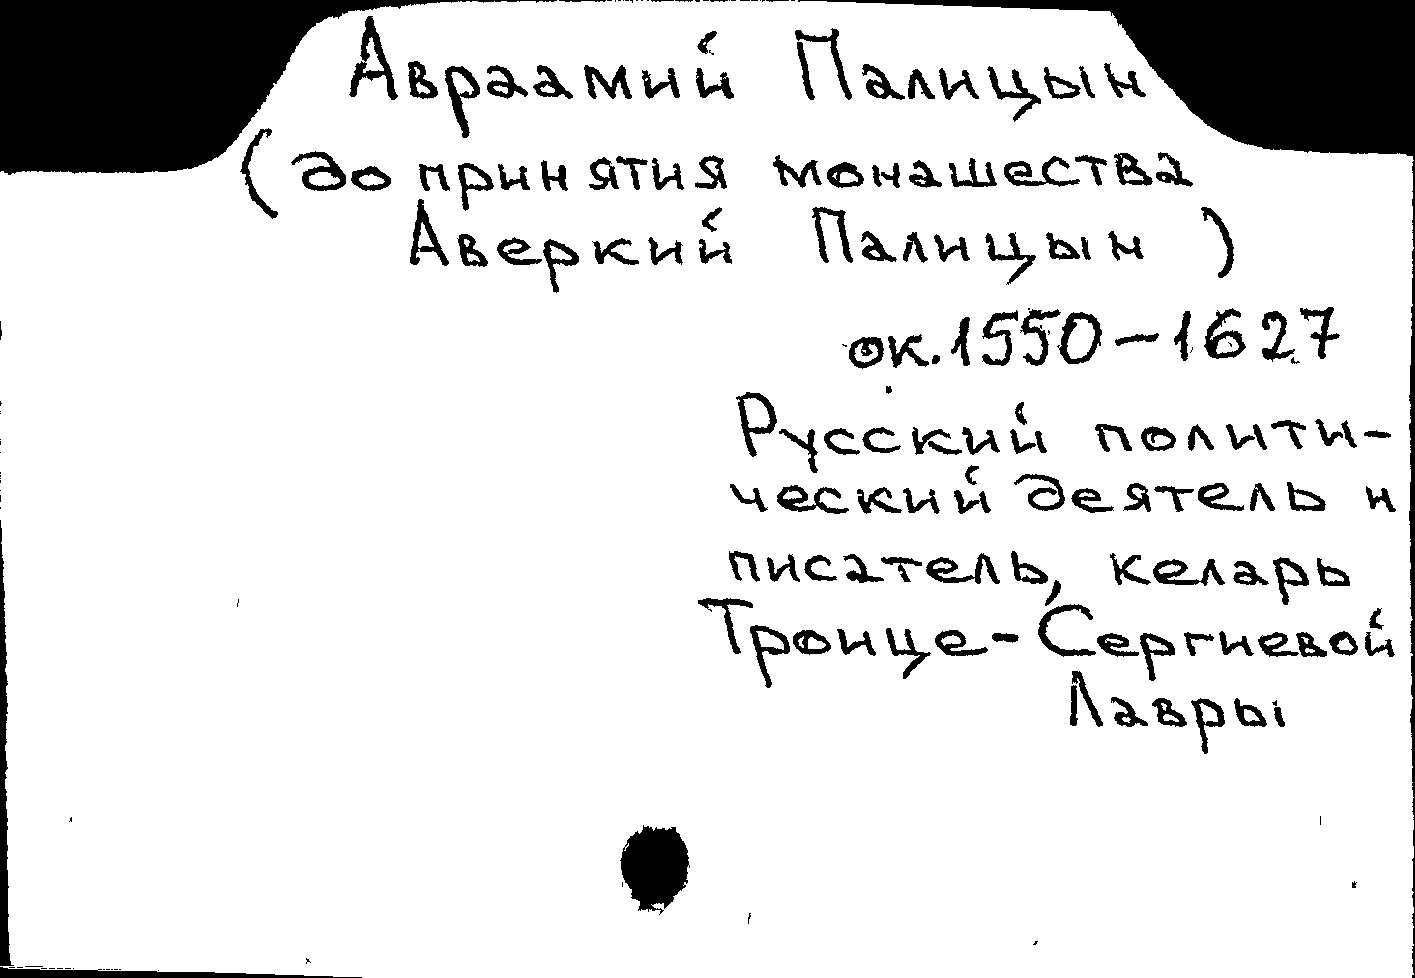 Авраамий Палицын
(до принятия монашества
Аверкий Палицын)
ок. 1550–1627
Русский полити-
ческий деятель и
писатель, келарь
Троице-Сергиевой
Лавры